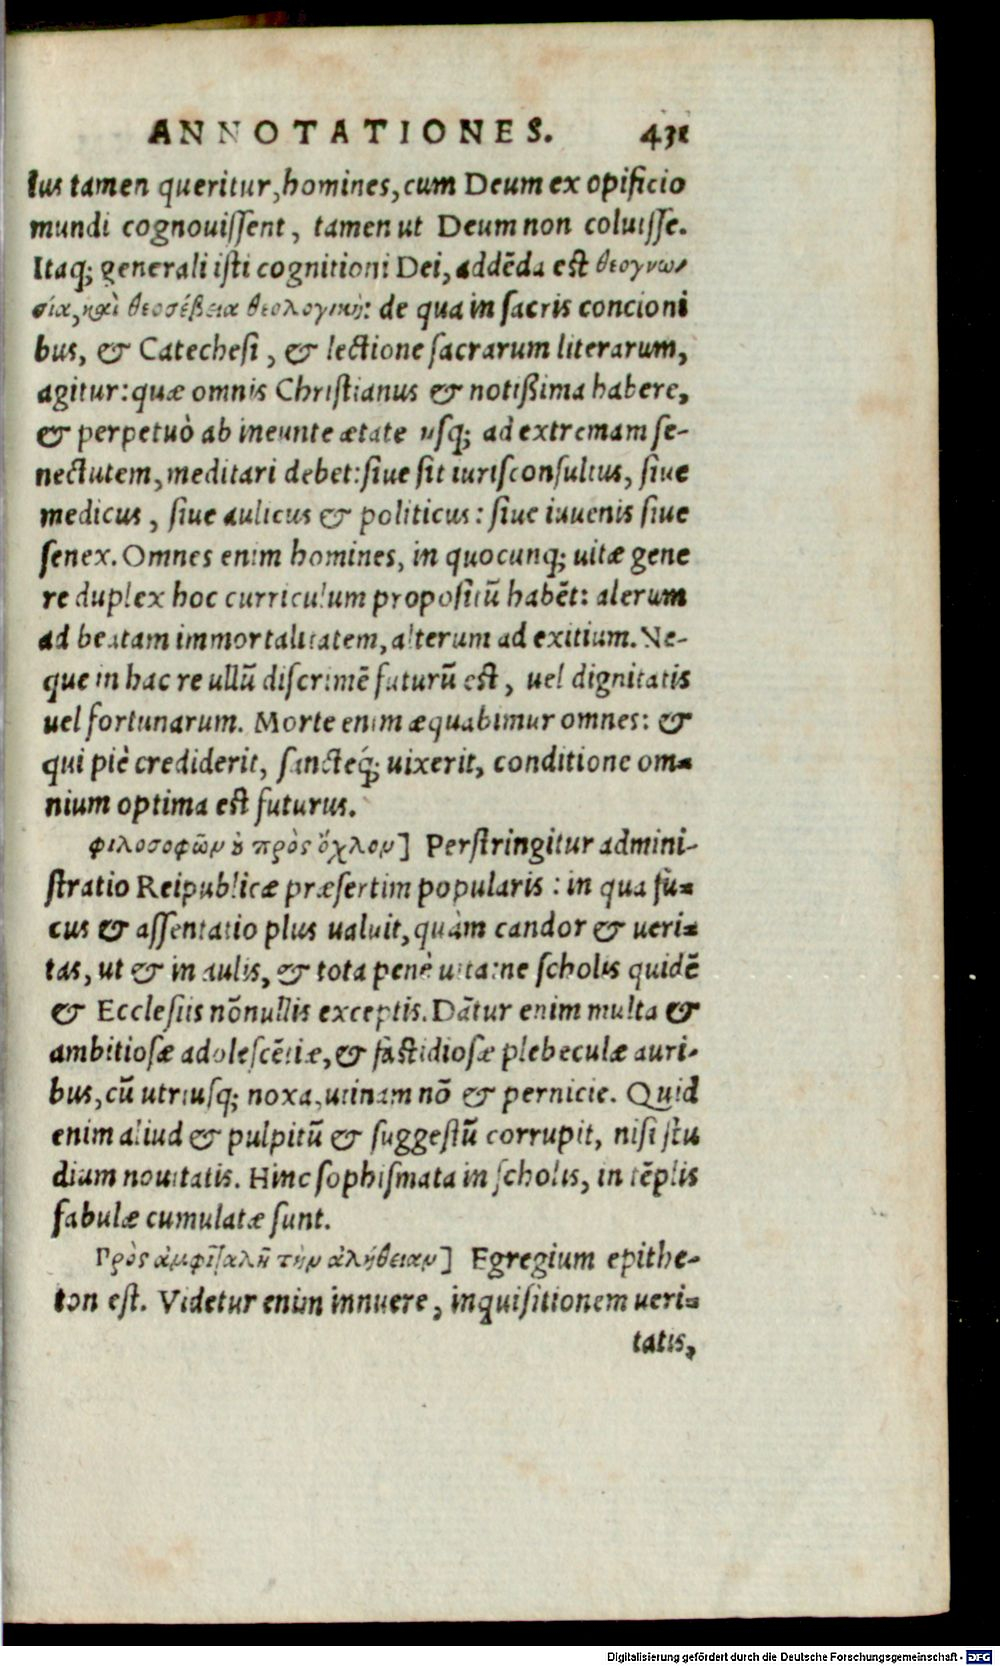 ANNOTATIONES. 431
lus tamen queritur, homines, cum Deum ex opificio
mundi cognouiſſent, tamen ut Deum non coluiſſe.
Itaq; generali iſti cognitioni Dei, addēda est θεογνω-
σία, καὶ θεοσέβεια θεολογικὴ: de qua in ſacris concioni
bus, & Catecheſi, & lectione ſacrarum literarum,
agitur: quæ omnis Chriſtianus & notißima habere,
& perpetuò ab ineunte ætate uſq; ad extremam ſe-
nectutem, meditari debet: ſiue ſit iuriſconſultus, ſiue
medicus, ſiue aulicus & politicus: ſiue iuuenis ſiue
ſenex. Omnes enim homines, in quocunq; uitæ gene
re duplex hoc curriculum propoſitū habēt: alerum
ad beatam immortalitatem, alterum ad exitium. Ne-
que in hac re ullū diſcrimē futurū est, uel dignitatis
uel fortunarum. Morte enim æquabimur omnes: &
qui piè crediderit, ſancteq́; uixerit, conditione om-
nium optima est futurus.
φιλοσοφῶν ὁ πρὸς ὄχλον] Perſtringitur admini-
ſtratio Reipublicæ præſertim popularis: in qua fu-
cus & aſſentatio plus ualuit, quàm candor & ueri-
tas, ut & in aulis, & tota penè uita: ne ſcholis quidē
& Eccleſiis nōnullis exceptis. Dātur enim multa &
ambitioſæ adoleſcētiæ, & faſtidioſæ plebeculæ auri-
bus, cū utriuſq; noxa, utinam nō & pernicie. Quid
enim aliud & pulpitū & ſuggeſtū corrupit, niſi ſtu
dium nouitatis. Hinc ſophiſmata in ſcholis, in tēplis
fabulæ cumulatæ ſunt.
Πρὸς ἀμφιθαλῆ τὴν ἀλήθειαν] Egregium epithe-
ton eſt. Videtur enim innuere, inquiſitionem ueri-
tatis,
Digitalisierung gefördert durch die Deutsche Forschungsgemeinschaft - DFG